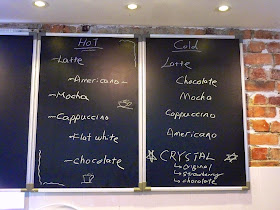 Hot
-Latte
-Americano-
-Mocha
-Cappuccino
-Flat white
-chocolate
Cold
Latte
Chocolate
Mocha
Cappuccino
Americano
CRYSTAL
original
strawberry
chocolate